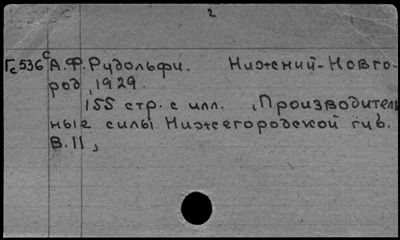 2
Гс536 с А.Ф.Рудольфи. Нижний-Новго-
род, 1929.
155 стр. с илл. „Производитель
ные силы Нижегородской губ.
В.11„